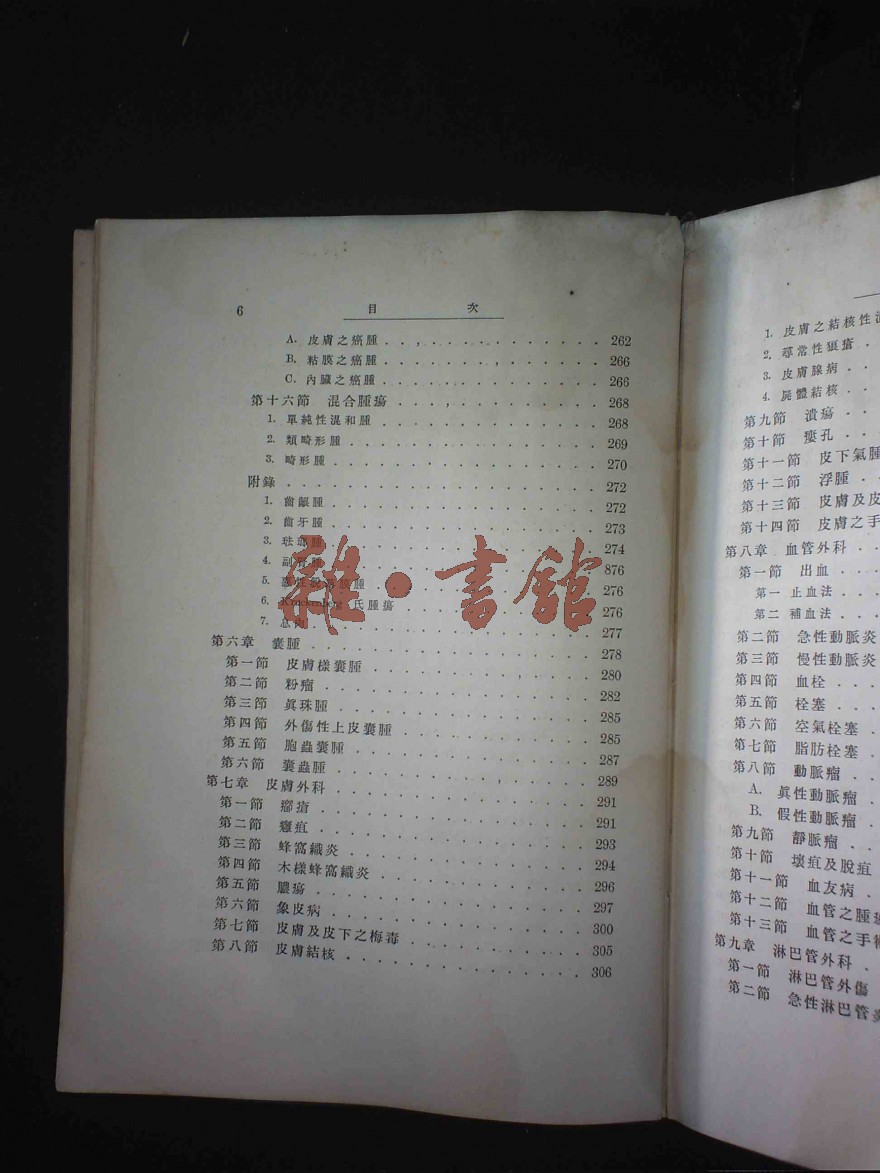 6 目 次
A. 皮膚之癌腫 262
B. 粘膜之癌腫 266
C. 內臟之癌腫 266
第十六節 混合腫瘍 268
1. 單純性混和腫 268
2. 類畸形腫 269
3. 畸形腫 270
附錄 272
1. 齒齦腫 272
2. 齒牙腫 273
3. 琺瑯腫 274
4. 副腎腫 876
5. 惡性 膜腫 276
6. 氏腫瘍 276
7. 息肉 277
第六章 囊腫 278
第一節 皮膚樣囊腫 280
第二節 粉瘤 282
第三節 眞珠腫 285
第四節 外傷性上皮囊腫 285
第五節 胞蟲囊腫 287
第六節 囊蟲腫 289
第七章 皮膚外科 291
第一節 癤瘡 291
第二節 癰疽 293
第三節 蜂窩織炎 294
第四節 木樣蜂窩織炎 296
第五節 膿瘍 297
第六節 象皮病 300
第七節 皮膚及皮下之梅毒 305
第八節 皮膚結核 306
雜·書館
1. 皮膚之結核性
2. 尋常性狼瘡
3. 皮膚腺病
4. 屍體結核
第九節 潰瘍
第十節 瘻孔
第十一節 皮下氣腫
第十二節 浮腫
第十三節 皮膚及皮
第十四節 皮膚之手
第八章 血管外科
第一節 出血
第一 止血法
第二 補血法
第二節 急性動脈炎
第三節 慢性動脈炎
第四節 血栓
第五節 栓塞
第六節 空氣栓塞
第七節 脂肪栓塞
第八節 動脈瘤
A. 眞性動脈瘤
B. 假性動脈瘤
第九節 靜脈瘤
第十節 壞疽及脫疽
第十一節 血友病
第十二節 血管之腫瘍
第十三節 血管之手術
第九章 淋巴管外科
第一節 淋巴管外傷
第二節 急性淋巴管炎